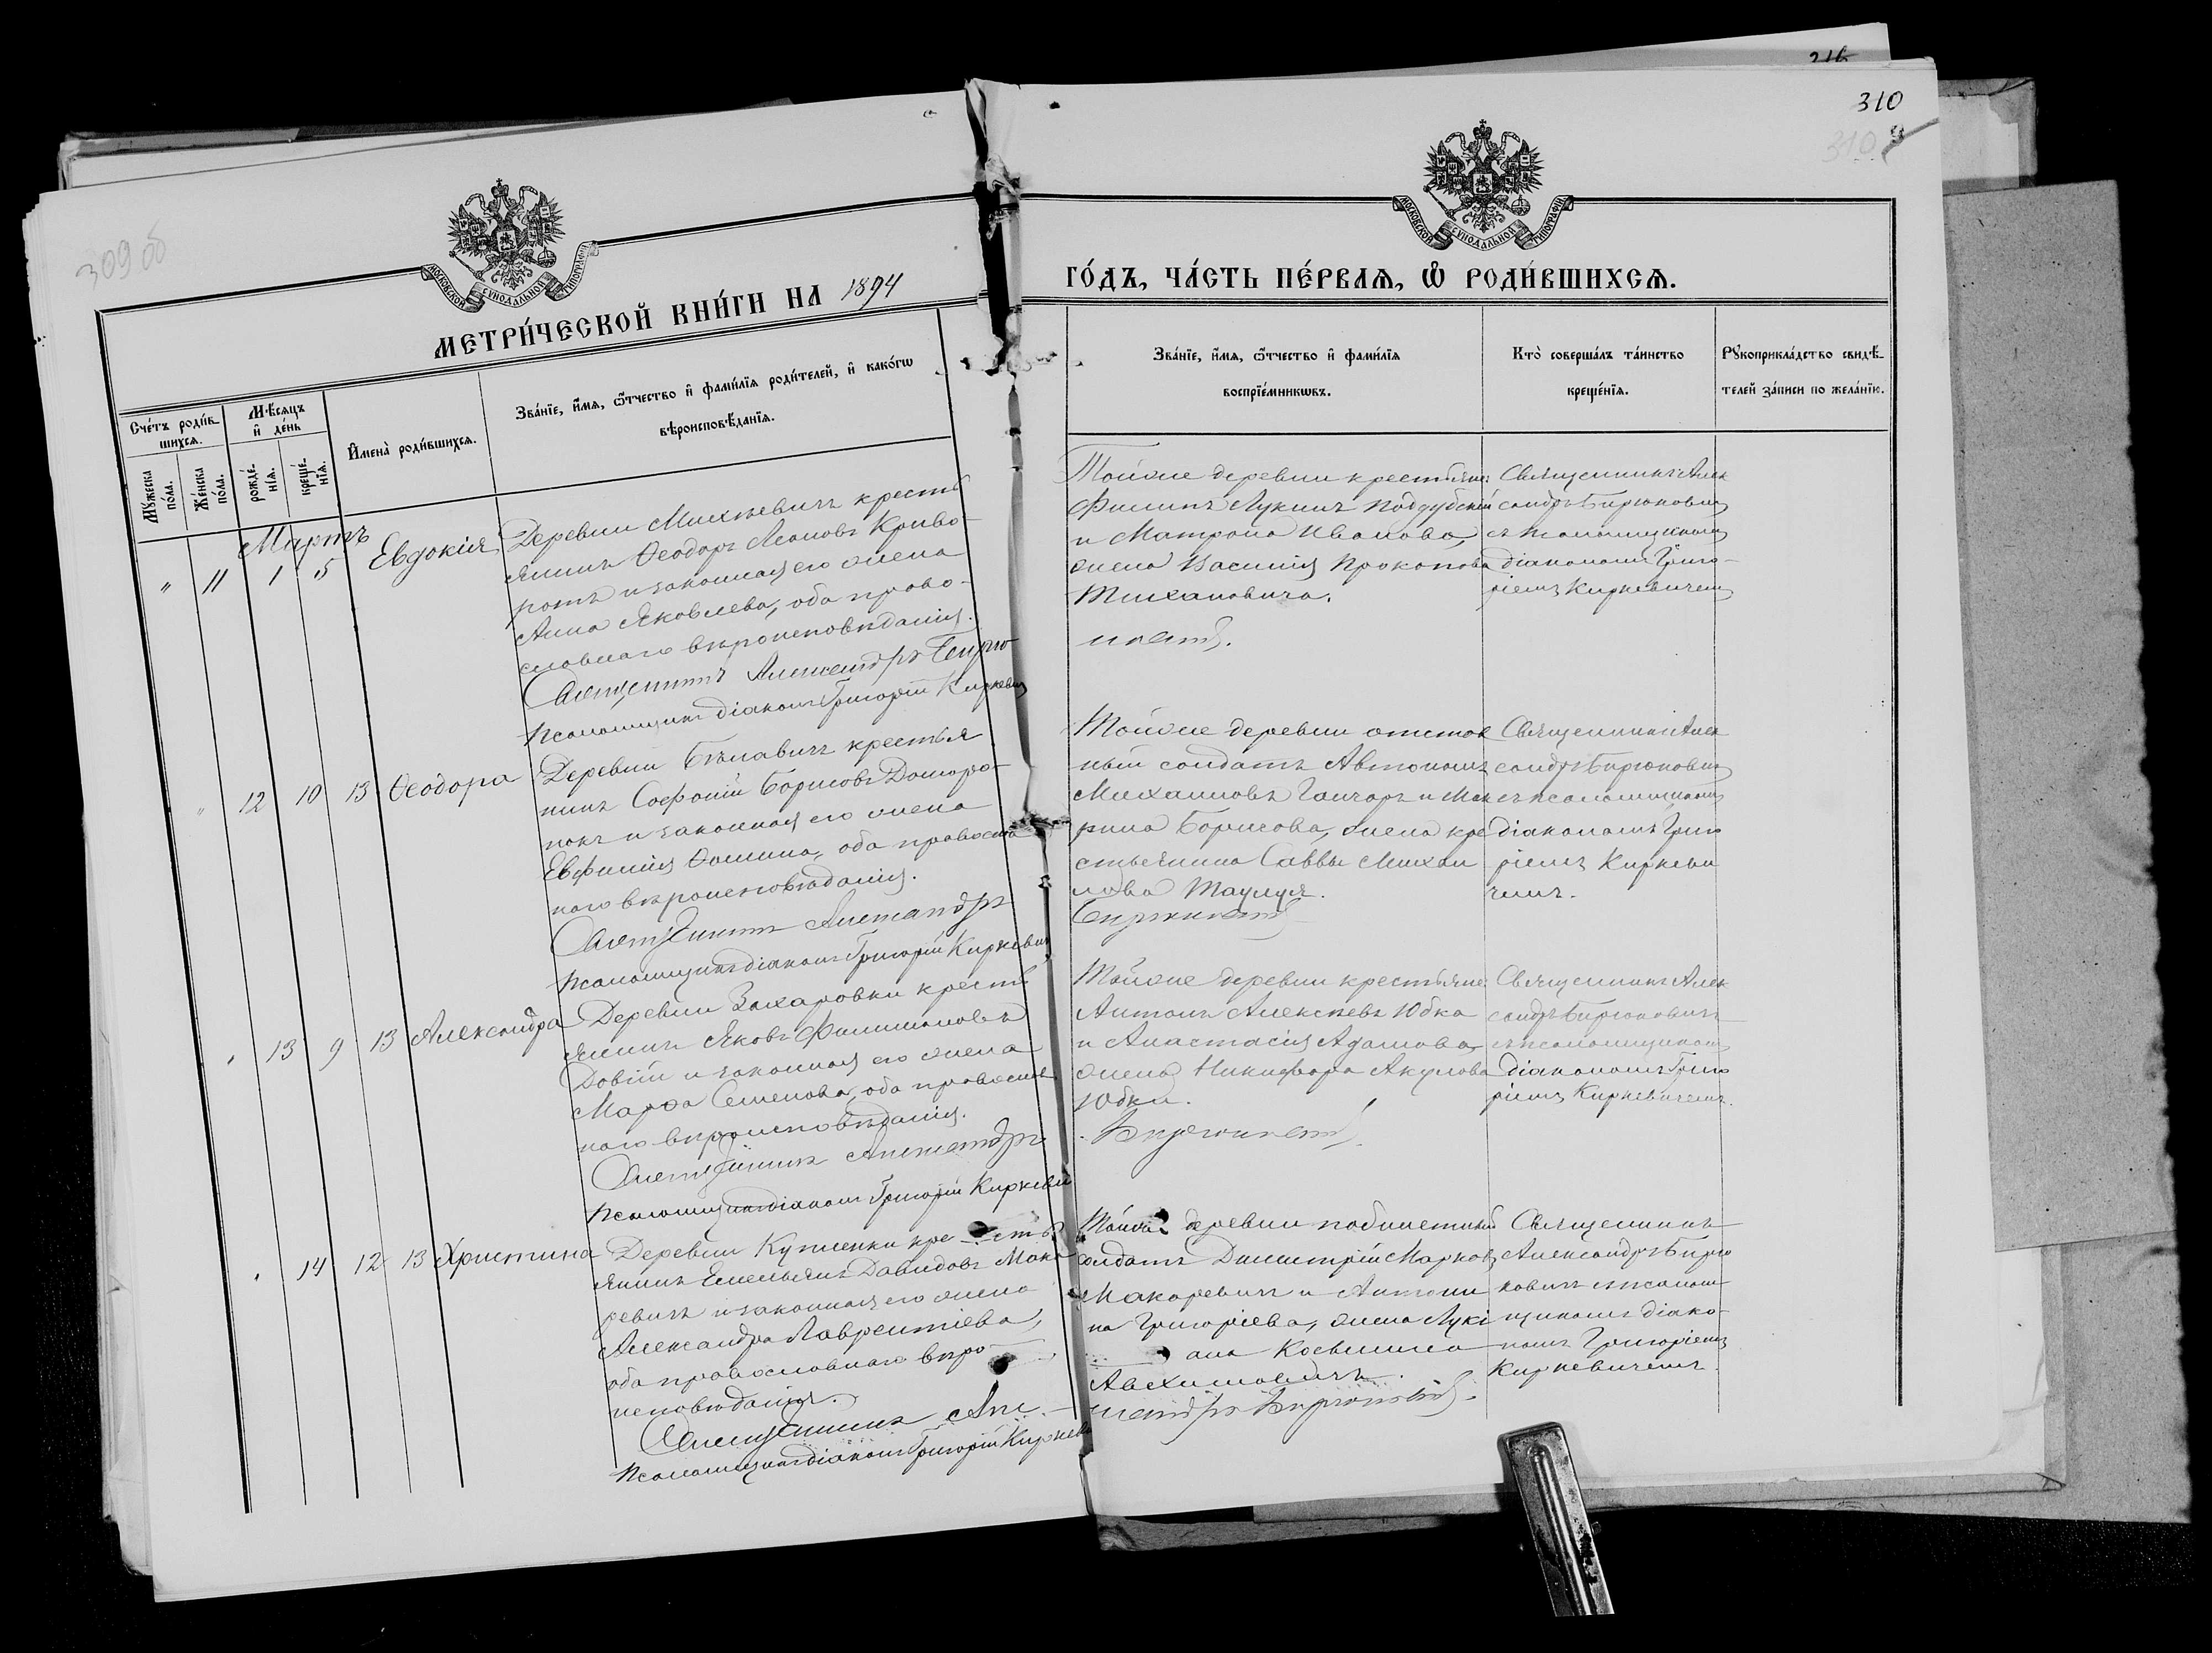 216
310
310
309 об
МОСКОВСКОЙ СѴНОДАЛЬНОЙ ТИПОГРАФІИ
МОСКОВСКОЙ СѴНОДАЛЬНОЙ ТИПОГРАФІИ
МЕТРИ́ЧЕСКОЙ КНИ́ГИ НА 1894
ГО́ДЪ, ЧА́СТЬ ПЕ́РВАѦ, Ѽ РОДИ́ВШИХСѦ.
Сче́тъ роди́в-
шихсѧ.
Мꙋ́жеска
по́ла.
Же́нска
по́ла.
Мѣ́сѧцъ
и҆ де́нь
рожде́-
нїѧ.
креще́-
нїѧ.
И҆мена̀ роди́вшихсѧ.
Зва́нїе, и҆́мѧ, ѿтчество и҆ фами́лїѧ роди́телей, и҆ како́гѡ
вѣроисповѣ́данїѧ.
Зва́нїе, и҆́мѧ, ѿтчество и҆ фами́лїѧ
воспрїе́мникѡвъ.
Кто̀ соверша́лъ та́инство
креще́нїѧ.
Рꙋкоприкла́дство свидѣ́-
телей за́писи по жела́нїю.
Мартъ
" 11 1 5 Евдокія
Деревни Михневичъ кресть
янинъ Ѳеодоръ Леоновъ Криво-
ротъ и законная его жена
Анна Яковлева, оба право-
славнаго вѣроисповѣданія.
Священникъ Александръ Бирю
Псаломщикъ діаконъ Григорій Киркевичъ
Тойже деревни крестьяне:
Филипъ Лукинъ Поддубскій
и Матрона Иванова,
жена Василія Прокопова
Тихановича.
Священникъ Алек
сандръ Бирюковичъ
съ псаломщикомъ
діакономъ Григо-
ріемъ Киркевичемъ
" 12 10 13 Ѳеодора
Деревни Бѣлавичъ крестья
нинъ Софоній Борисовъ
и законная его жена
Евфимія Ѳомина, оба правосла
внаго вѣроисповѣданія.
Священникъ Александръ
Псаломщикъ діаконъ Григорій Киркевичъ
Тойже деревни отстав
ный солдатъ Автономъ
Михаиловъ Ганчаръ и Мак
рина Борисова, жена кре
стьянина Саввы Михаи
лова
Священникъ Алек
сандръ Бирюковичъ
съ псаломщикомъ
діакономъ Григо
ріемъ Киркеви
чемъ.
" 13 9 13 Александра
Деревни Захаровки кресть
янинъ Яковъ Филимоновъ
Довгій и законная его жена
Марѳа Семенова, оба православ
наго вѣроисповѣданія.
Священникъ Александръ
Псаломщикъ діаконъ Григорій Киркевичъ
Тойже деревни крестьяне:
Антонъ Алексѣевъ Юбка
и Анастасія Адамова
жена Никифора Акулова
Юбки.
Бирюковичъ
Священникъ Алек
сандръ Бирюковичъ
съ псаломщикомъ
діакономъ Григо
ріемъ Киркевичемъ.
" 14 12 13 Христина
Деревни Куписенки кресть
янинъ Емельянъ Давидовъ Мака
ревичъ и законная его жена
Александра Лаврентіева,
оба православнаго вѣро-
исповѣданія.
Священникъ Але-
Псаломщикъ діаконъ Григорій Киркевичъ
Тойже деревни
солдатъ Димитрій Марковъ
Макаревичъ и Антони
на Григоріева, жена Лукі
ана Косьмина
Авхимовичъ.
ксандръ Бирюковичъ.
Священникъ
Александръ Бирю
ковичъ съ псалом-
щикомъ діако-
номъ Григоріемъ
Киркевичемъ.